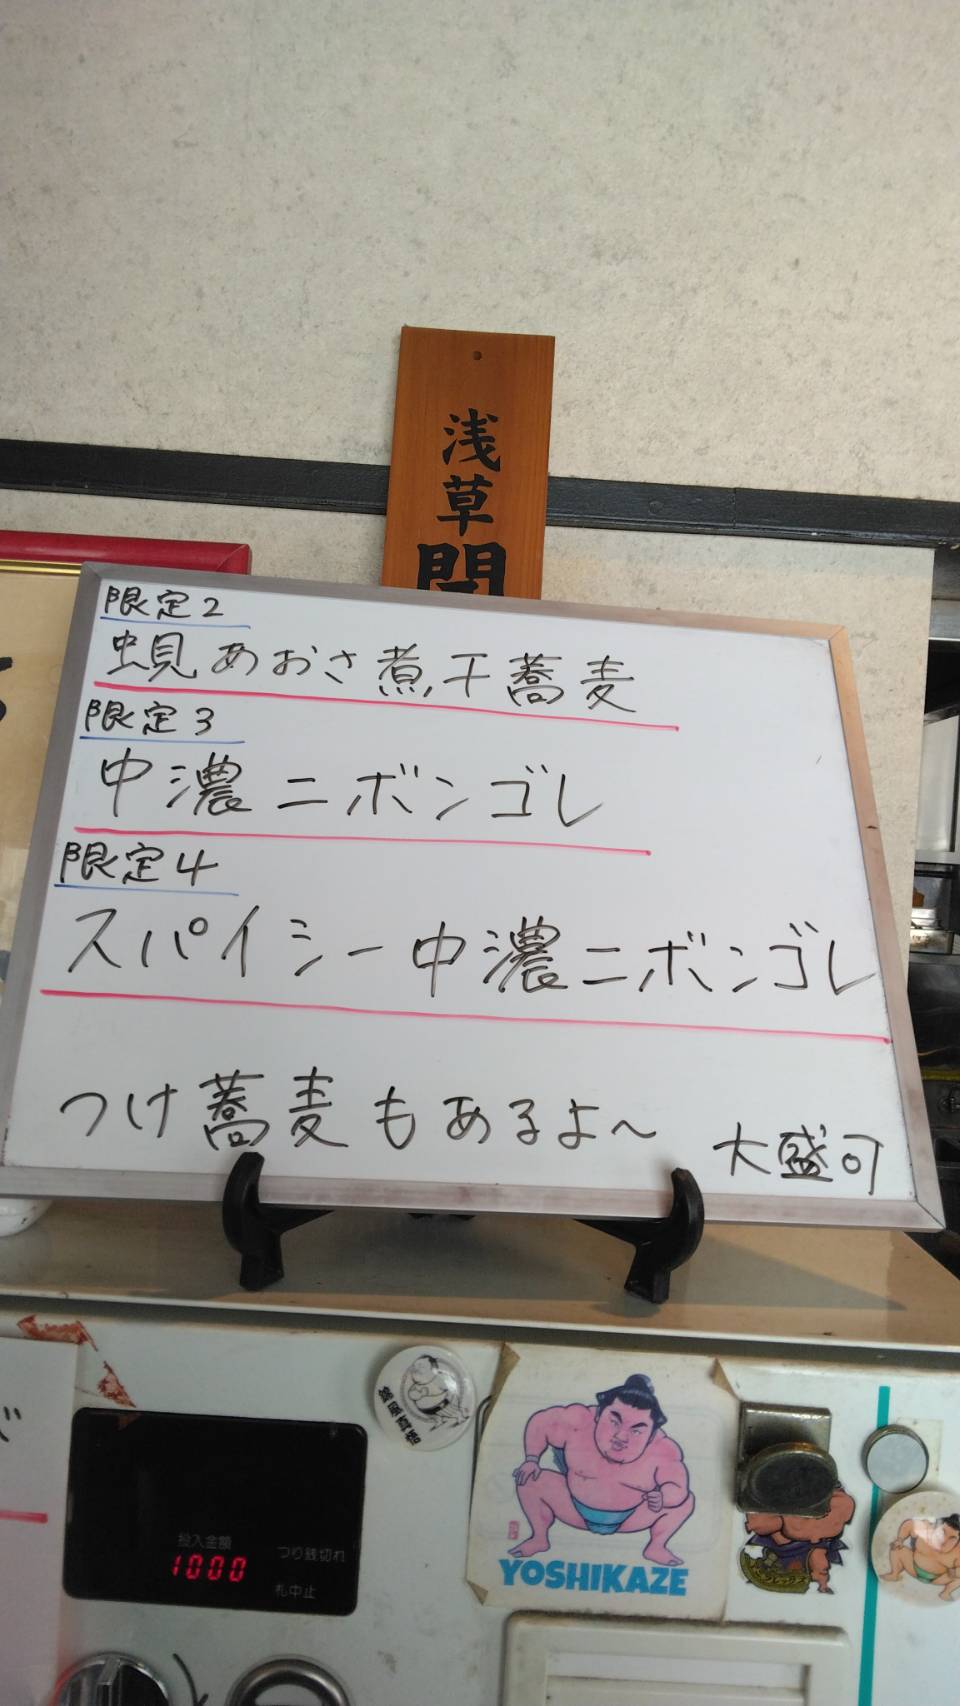 浅草開
限定2
蜆あおさ煮干蕎麦
限定3
中濃ニボンゴレ
限定4
スパイシー中濃ニボンゴレ
つけ蕎麦もあるよ〜
大盛可
投入金額
1000
つり銭切れ
札中止
YOSHIKAZE